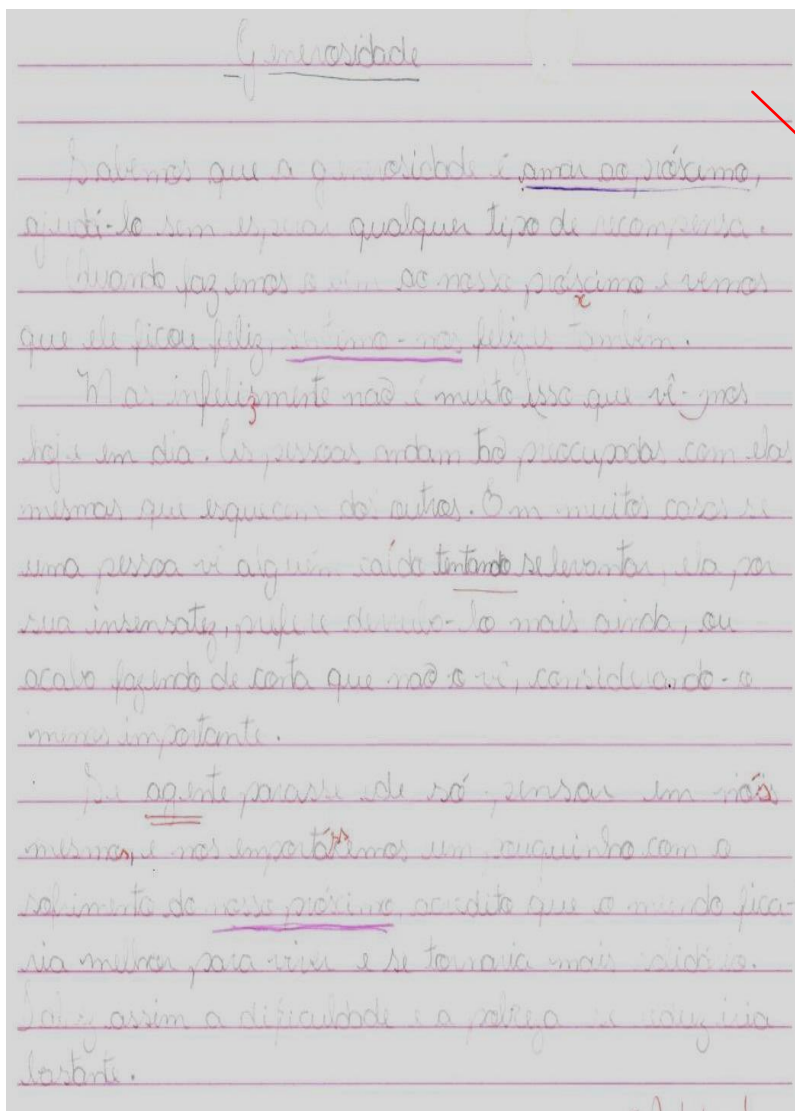 Generosidade
Sabemos que a generosidade é amar ao próximo,
ajudá-lo sem esperar qualquer tipo de recompensa.
Quando fazemos o bem ao nosso próximo e vemos
que ele ficou feliz, sentimo-nos felizes também.
Mas infelizmente não é muito isso que vê-mos
hoje em dia. As pessoas andam tão preocupadas com elas
mesmas que esquecem dos outros. Em muitos casos se
uma pessoa vê alguém caído tentando se levantar, ela, por
sua insensatez, prefere derruba-lo mais ainda, ou
acaba fazendo de conta que não o vê, considerando-o
menos importante.
Se agente parasse de só pensar em nós
mesmos, e nos importássemos um pouquinho com o
sofrimento do nosso próximo, acredito que o mundo fica-
ria melhor para viver e se tornaria mais solidário.
Talvez assim a dificuldade e a pobreza se reduziria
bastante.